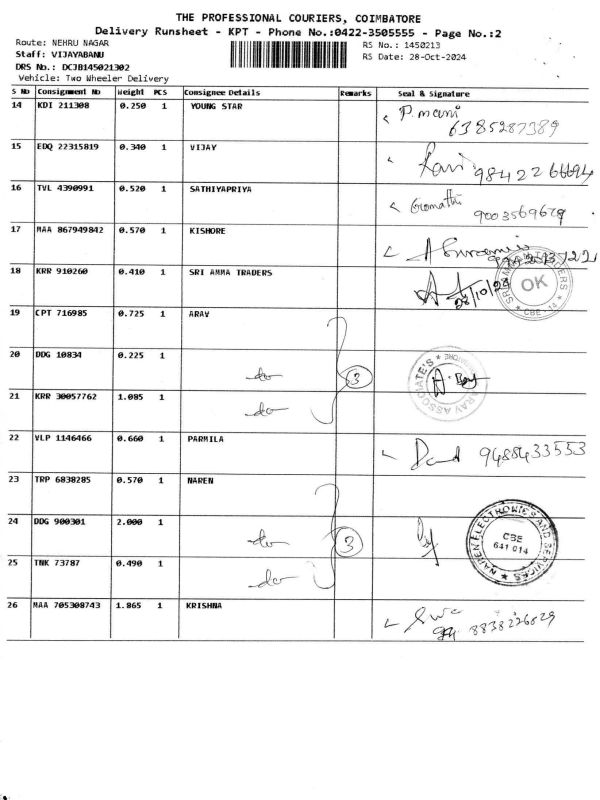 THE PROFESSIONAL COURIERS, COIMBATORE
Delivery Runsheet - KPT - Phone No.:0422-3505555 - Page No.:2
Route: NEHRU NAGAR
RS No.: 1450213
Staff: VIJAYABANU
RS Date: 28-Oct-2024
DRS No.: DCJB145021302
Vehicle: Two Wheeler Delivery
S No Consignment No Weight PCS Consignee Details Remarks Seal & Signature
14 KDI 211308 0.250 1 YOUNG STAR P. mani
6385287389
15 EDQ 22315819 0.340 1 VIJAY Ravi 9842266694
16 TVL 4390991 0.520 1 SATHIYAPRIYA Gomathi
9003569679
17 MAA 867949842 0.570 1 KISHORE
18 KRR 910260 0.410 1 SRI AMMA TRADERS 28/10/24 SRI AMMA TRADERS OK CBE - 14
19 CPT 716985 0.725 1 ARAV
20 DDG 10834 0.225 1 do 3 ARAV ASSOCIATE'S
21 KRR 30057762 1.085 1 do
22 VLP 1146466 0.660 1 PARMILA 9488433553
23 TRP 6838285 0.570 1 NAREN
24 DDG 900301 2.000 1 do 3 NAREN ELECTRONICS AND SERVICES CBE 641 014
25 TNK 73787 0.490 1 do
26 MAA 705308743 1.865 1 KRISHNA
8838226829